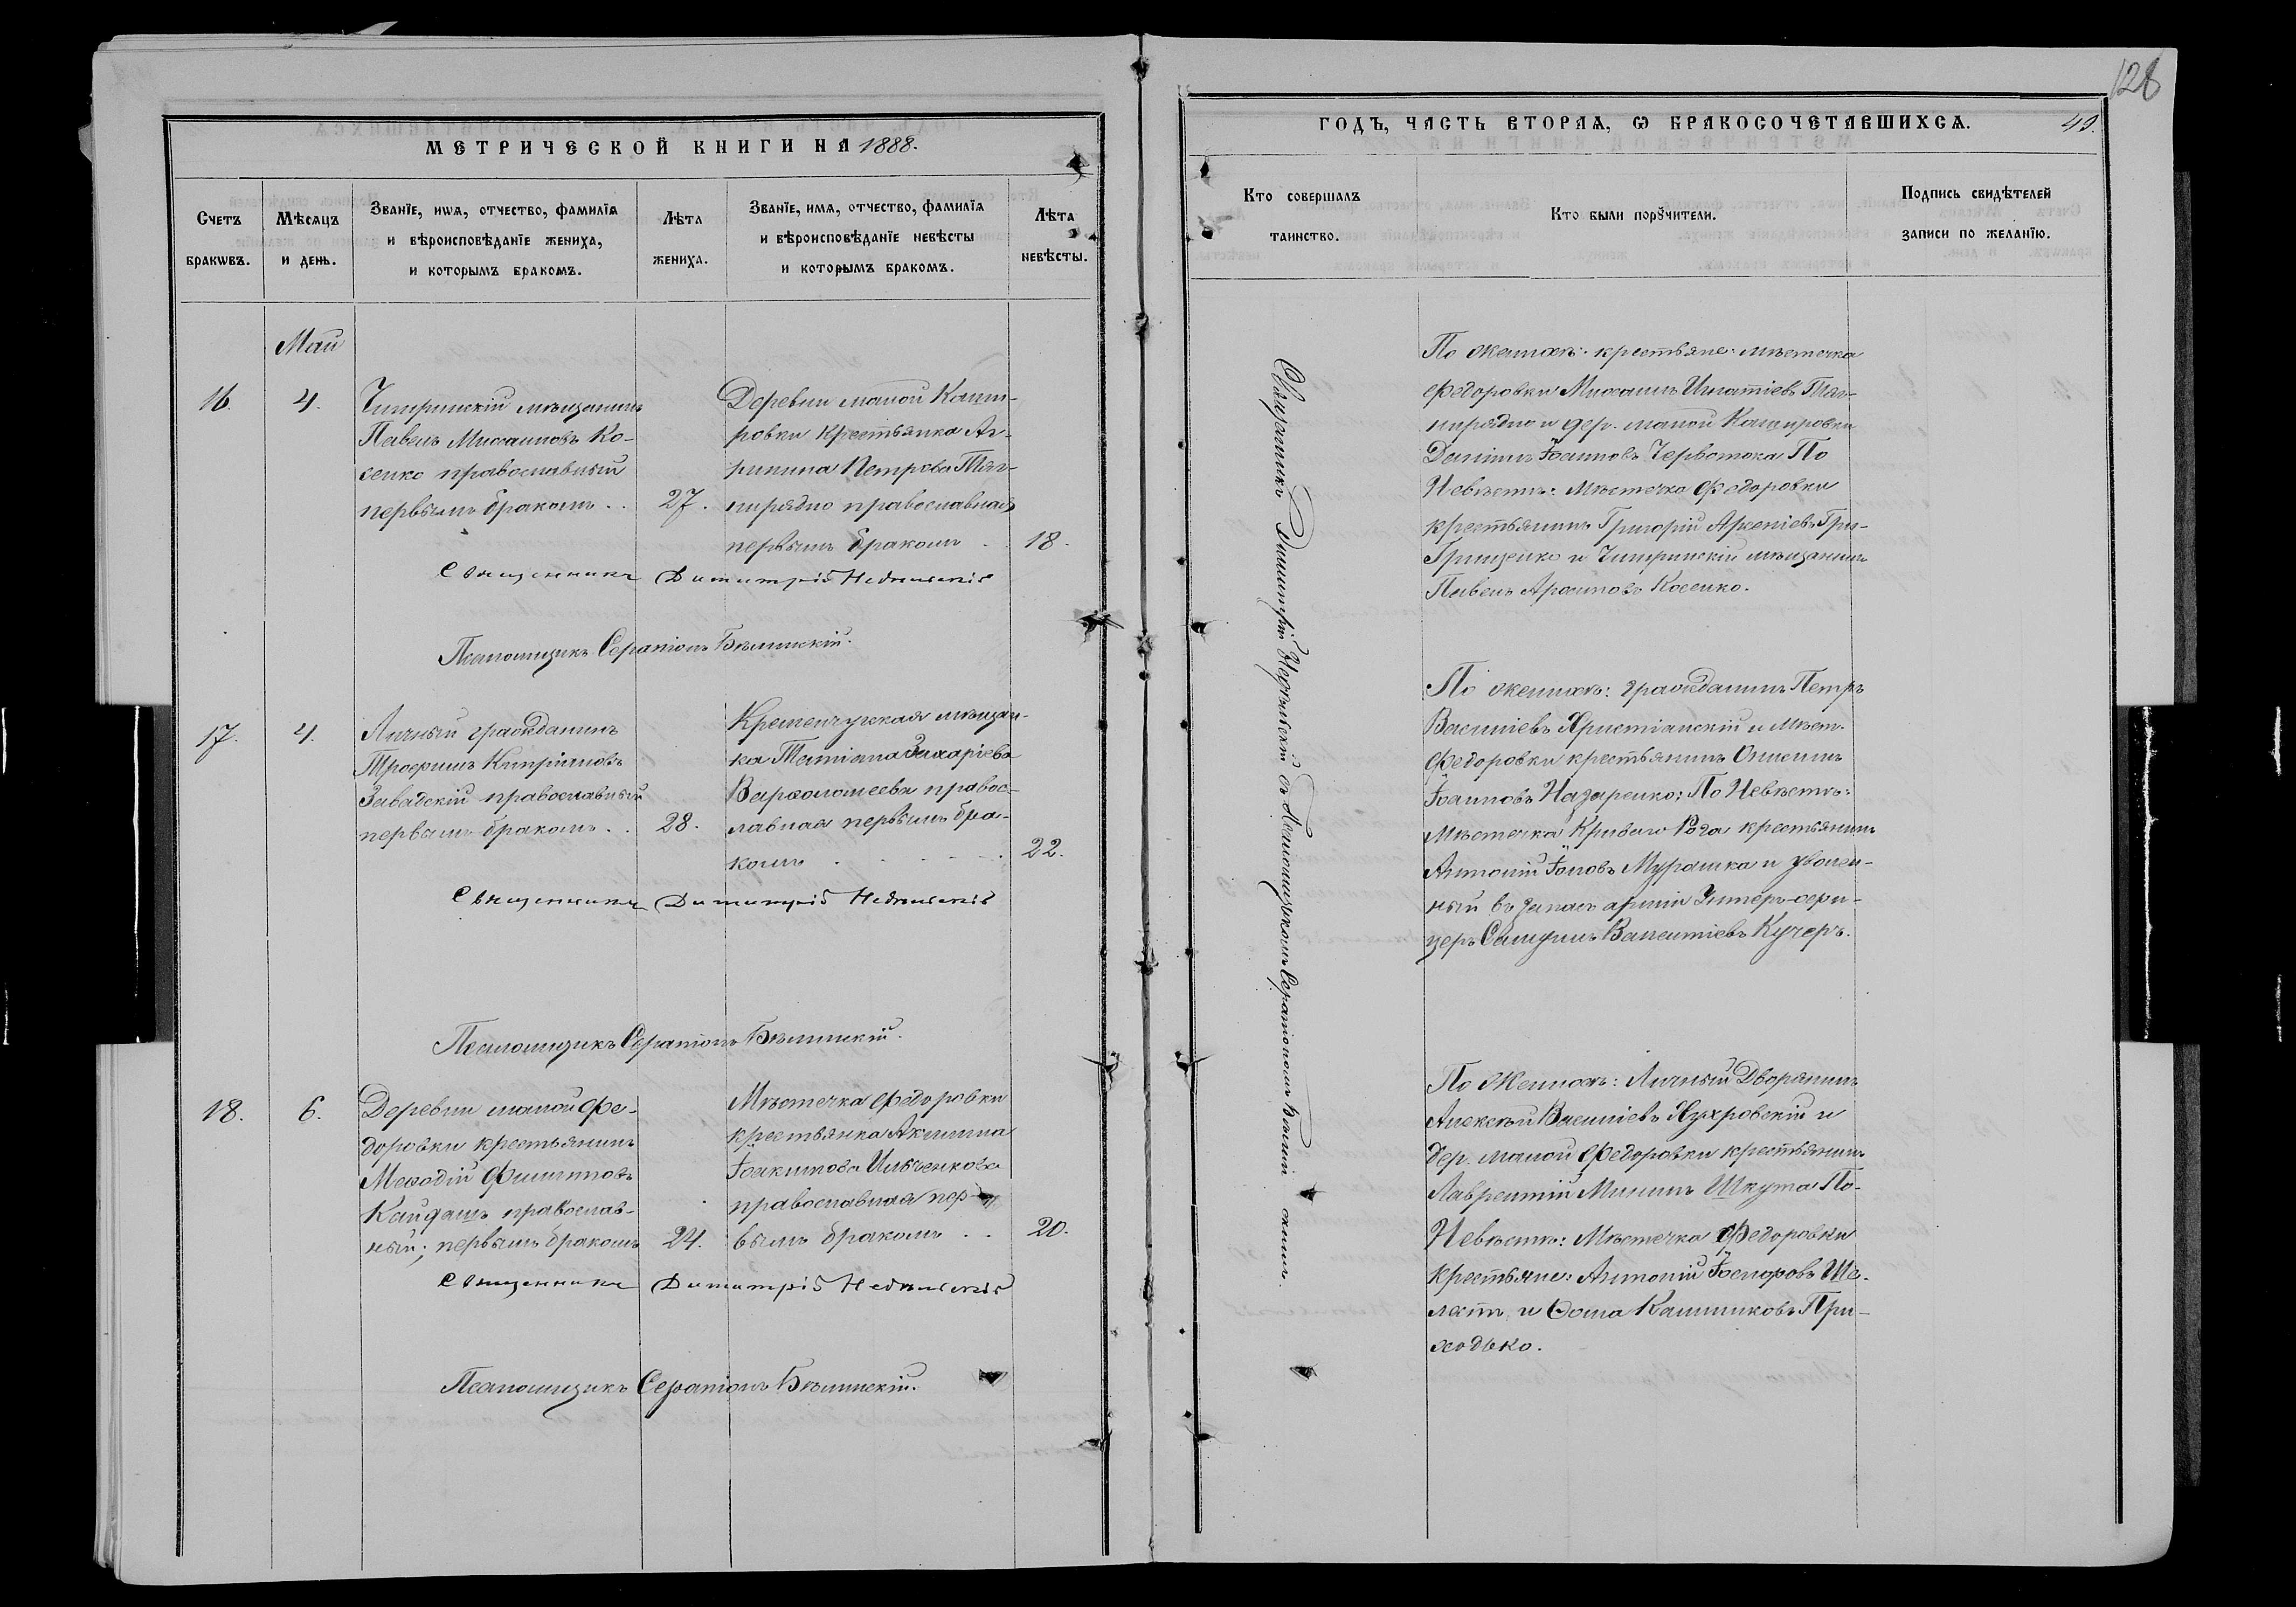 128
МЕТРИЧЕСКОЙ КНИГИ НА 1888.
Счетъ бракѡвъ.
Мѣсяцъ и день.
Званіе, имя, отчество, фамилія и вѣроисповѣданіе жениха, и которымъ бракомъ.
Лѣта жениха.
Званіе, имя, отчество, фамилія и вѣроисповѣданіе невѣсты и которымъ бракомъ.
Лѣта невѣсты.
Май
16.
4.
Чигринскій мѣщанинъ
Павелъ Михаиловъ Ко-
сенко православный
первымъ бракомъ . .
27.
Деревни малой Кашп-
ровки крестьянка Аг-
рипина Петрова Тяг-
нирядно православная
первымъ бракомъ .
18.
Священникъ Димитрій Недѣльскій
Псаломщикъ Серапіонъ Бѣлинскій.
17.
4.
Личный гражданинъ
Трофимъ Кипріановъ
Завадскій православный
первымъ бракомъ . .
28.
Кременчугская мѣщан-
ка Татіана Захаріева
Варѳоломеева правос-
лавная первымъ бра-
комъ
22.
Священникъ Димитрій Недѣльскій
Псаломщикъ Серапіонъ Бѣлинскій.
18.
6.
Деревни малой Фе-
доровки крестьянинъ
Меѳодій Филиповъ
Кайдашъ православ-
ный; первымъ бракомъ
24.
Мѣстечка Федоровки
крестьянка Акилина
Іоакимова Ильченкова
православная пер-
вымъ бракомъ . .
20.
Священникъ Димитрій Недѣльскій
Псаломщикъ Серапіонъ Бѣлинскій.
ГОДЪ, ЧАСТЬ ВТОРАЯ, Ѡ БРАКОСОЧЕТАВШИХСЯ.
49.
Кто совершалъ таинство.
Кто были порꙋчители.
Подпись свидѣтелей записи по желанію.
Священникъ Димитрій Недѣльскій съ Псаломщикомъ Серапіономъ Бѣлин скимъ.
По женихѣ: крестьяне: мѣстечка
Федоровки Михаилъ Игнатіевъ Тяг-
нирядно и дер. малой Кашировки
Даніилъ Іоанновъ Червотока По
Невѣстѣ: Мѣстечка Федоровки
крестьянинъ Григорій Арсеніевъ Гри-
Грищенко и Чигринскій мѣщанинъ
Павелъ Косенко.
По женихѣ: гражданинъ Петръ
Василіевъ Христіанскій и мѣст.
Федоровки крестьянинъ
Іоанновъ Назаренко; По Невѣстѣ:
Мѣстечка Кривого Рога крестьянинъ
Антоній Іововъ Мурашка и уволен-
ный въ запасъ арміи Унтеръ-офи-
церъ Самуилъ Валентіевъ Кучеръ.
По Женихѣ: Личный Дворянинъ
Алексѣй Василіевъ и
дер. малой Федоровки крестьянинъ
Лаврентій Мининъ Шкута По-
Невѣстѣ: Мѣстечка Федоровки
крестьяне: Антоній Ше-
лестъ и Ѳома Каллиниковъ При-
ходько.